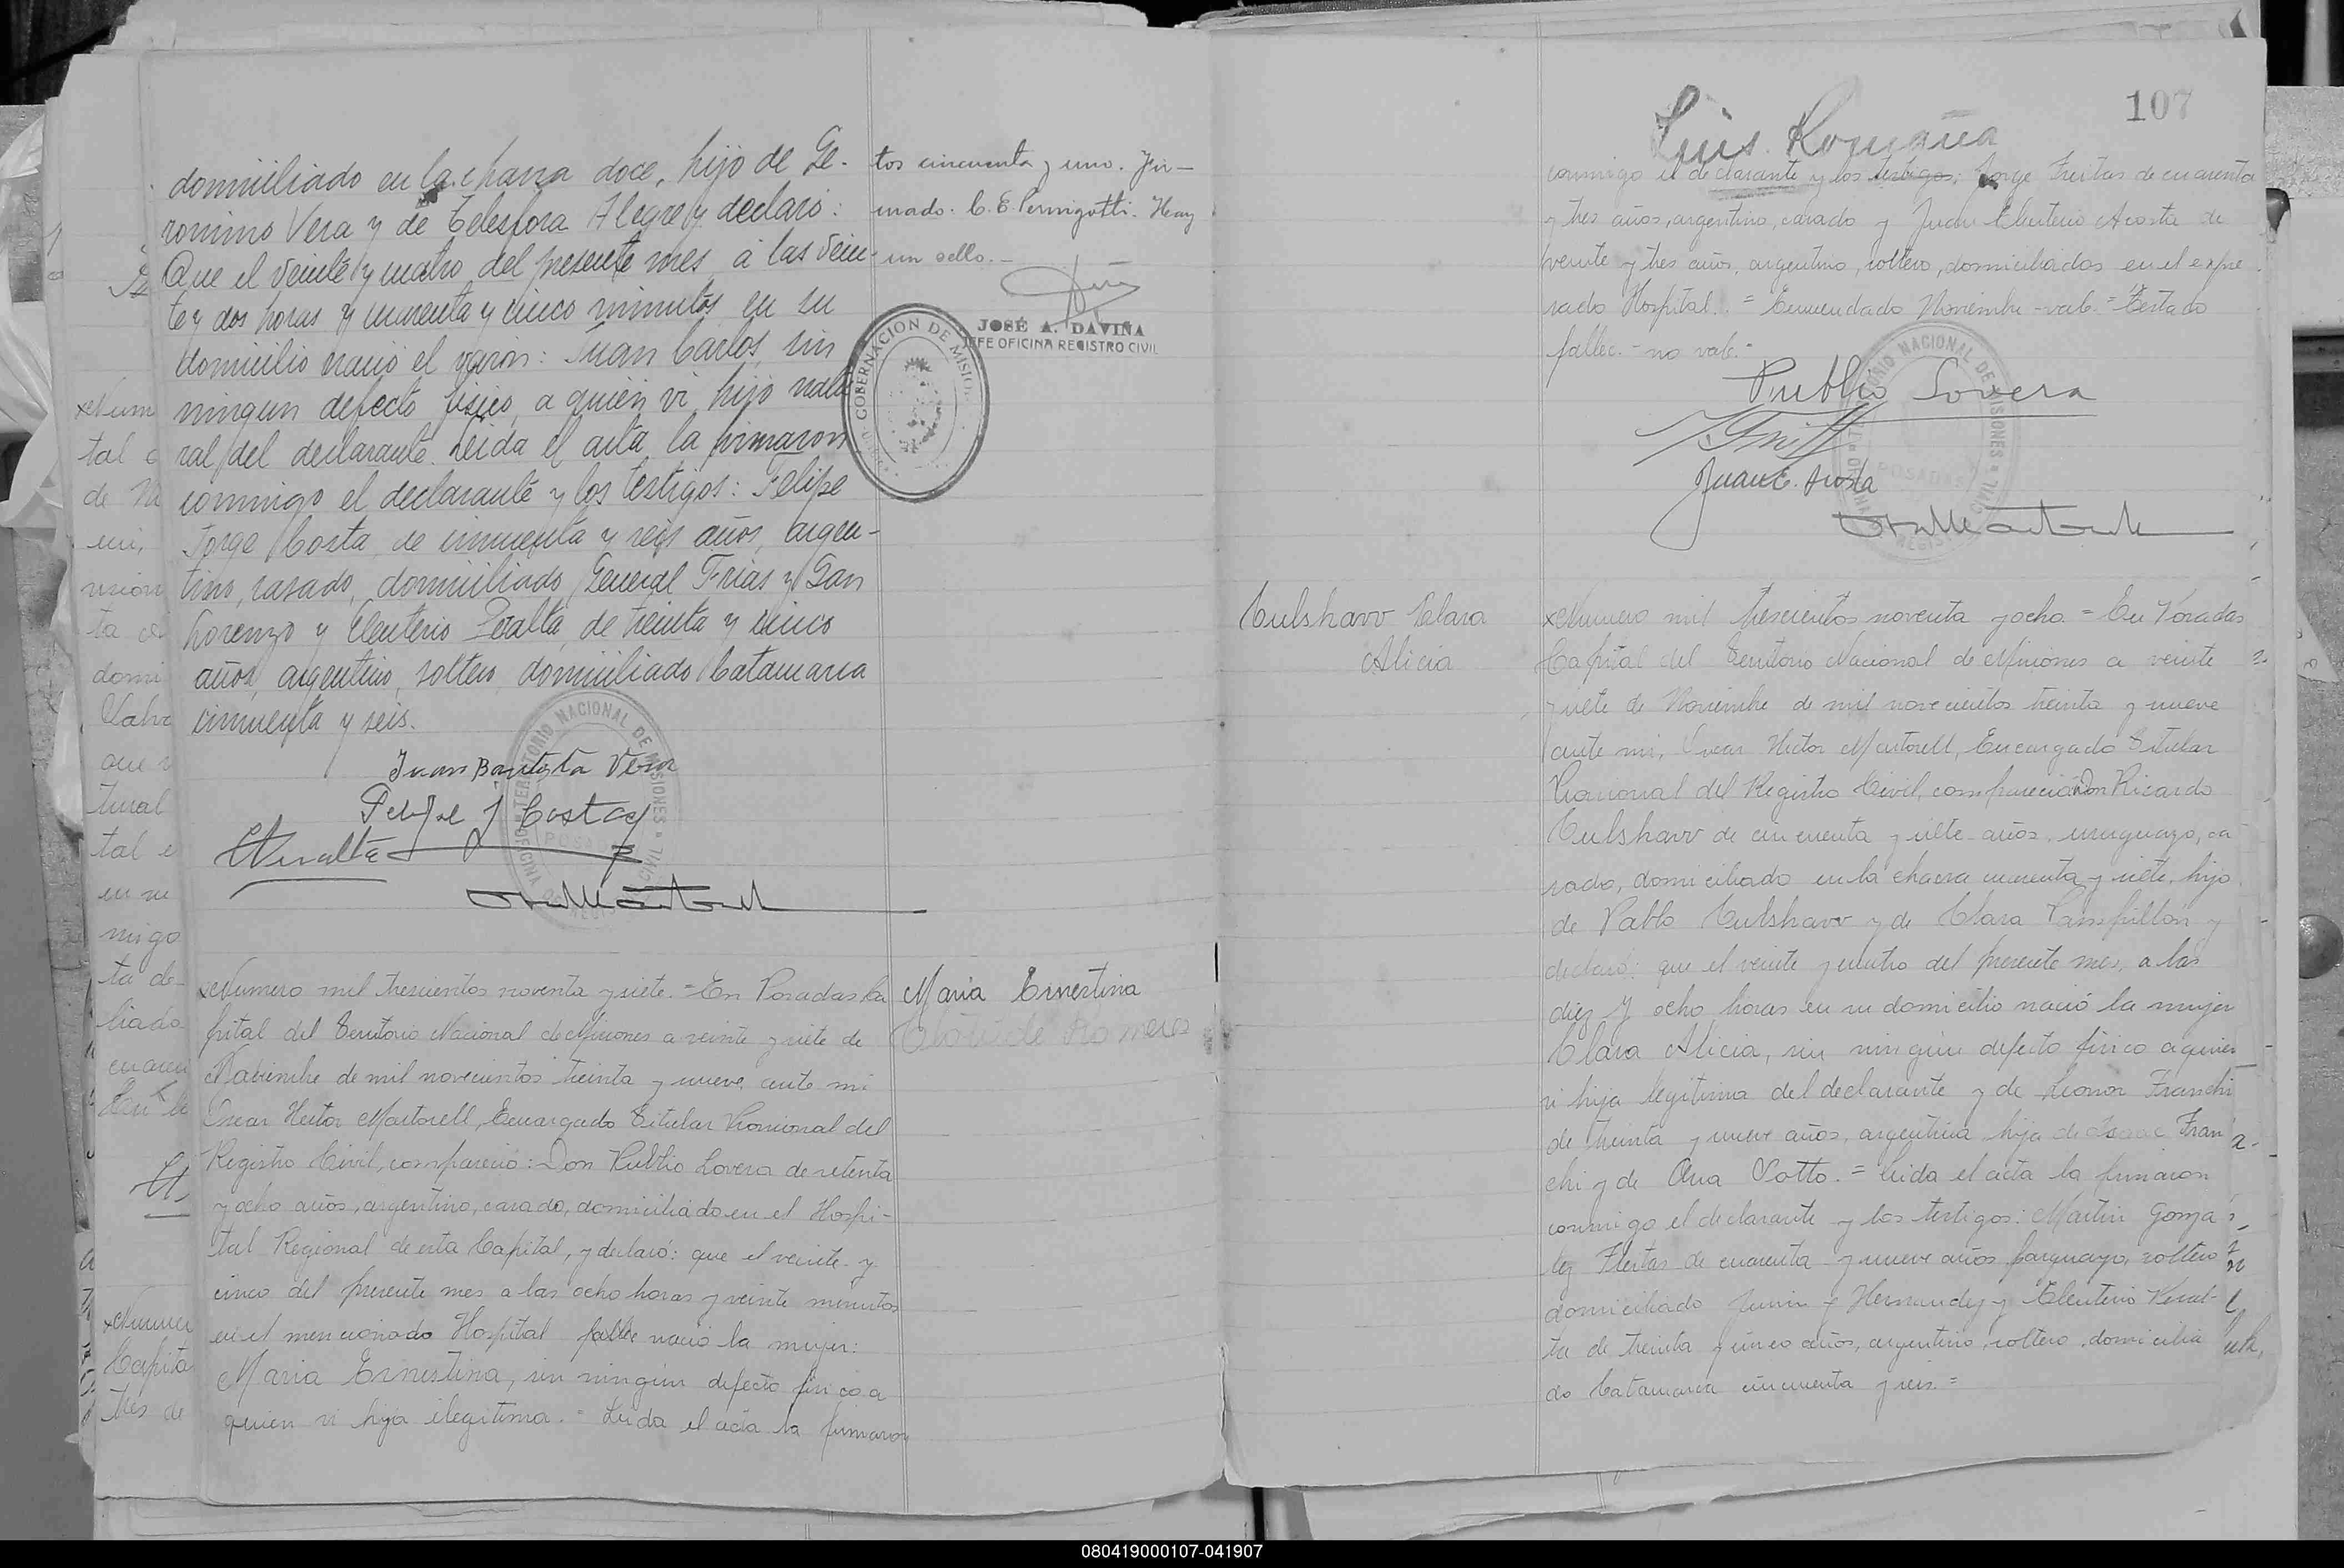 domiciliado en la chacra doce, hijo de Ge-
ronimo Vera y de Telesfora Alegre y declaró:
Que el veinte y cuatro del presente mes a las vein-
te y dos horas y cuarenta y cinco minutos en su
domicilio nació el varon: Juan Carlos, sin
ningun defecto fisico, a quien vi, hijo natu
ral del declarante. Leida el acta la firmaron
conmigo el declarante y los testigos: Felipe
Jorge Costa de cincuenta y seis años, argen-
tino, casado, domiciliado General Frias y San
Lorenzo y Eleuterio Peralta, de treinta y cinco
años, argentino, soltero, domiciliado Catamarca
cincuenta y seis.
Juan Bautista Vera
Felipe J Costa
EPeralta
tos cincuenta y uno. Fir-
mado. C. E. Pernigotti. Hay
un sello.-
JOSÉ A. DAVIÑA
JEFE OFICINA REGISTRO CIVIL
GOBERNACION DE MISIONES
TERRITORIO NACIONAL DE MISIONES
Numero mil trescientos noventa y siete.= En Posadas Ca
pital del Territorio Nacional de Misiones a veinte y siete de
Noviembre de mil novecientos treinta y nueve ante mi
Oscar Hector Martorell, Encargado Titular Provisional del
Registro Civil, compareció: Don Publio Lovera de setenta
y ocho años, argentino, casado, domiciliado en el Hospi-
tal Regional de esta Capital, y declaró: que el veinte y
cinco del presente mes a las ocho horas y veinte minutos
en el mencionado Hospital fallec nació la mujer:
Maria Ernestina, sin ningún defecto fisico a
quien vi hija ilegitima.= Leida el acta la firmaron
Maria Ernestina
Clotilde Romero
107
Luis Romaña
conmigo el declarante y los testigos; Jorge Freitas de cuarenta
y tres años, argentino, casado y Juan Eleuterio Acosta de
veinte y tres años, argentino, soltero, domiciliados en el expre
sado Hospital.= Enmendado Noviembre -vale.= Testado
fallec.- no vale.-
Publio Lovera
Juan E. Acosta
TERRITORIO NACIONAL DE MISIONES
POSADAS
Culshaw Clara
Alicia
Numero mil trescientos noventa y ocho.= En Posadas
Capital del Territorio Nacional de Misiones a veinte
y siete de Noviembre de mil novecientos treinta y nueve
ante mi, Oscar Hector Martorell, Encargado Titular
Provisional del Registro Civil, compareció Don Ricardo
Culshaw de cincuenta y siete años, uruguayo, ca
sado, domiciliado en la chacra cuarenta y siete, hijo
de Pablo Culshaw y de Clara Campillón y
declaró: que el veinte y cuatro del presente mes, a las
diez y ocho horas en su domicilio nació la mujer
Clara Alicia, sin ningún defecto fisico a quien
vi hija legitima del declarante y de Leonor Franchi
de treinta y nueve años, argentina hija de Isaac Fran
chi y de Ana Sotto.= Leida el acta la firmaron
conmigo el declarante y los testigos: Martin Gonza
lez Fleitas de cuarenta y nueve años, paraguayo, soltero
domiciliado Junin y Hernandez y Eleuterio Peral-
ta de treinta y cinco años, argentino, soltero, domicilia
do Catamarca cincuenta y seis.=
080419000107-041907